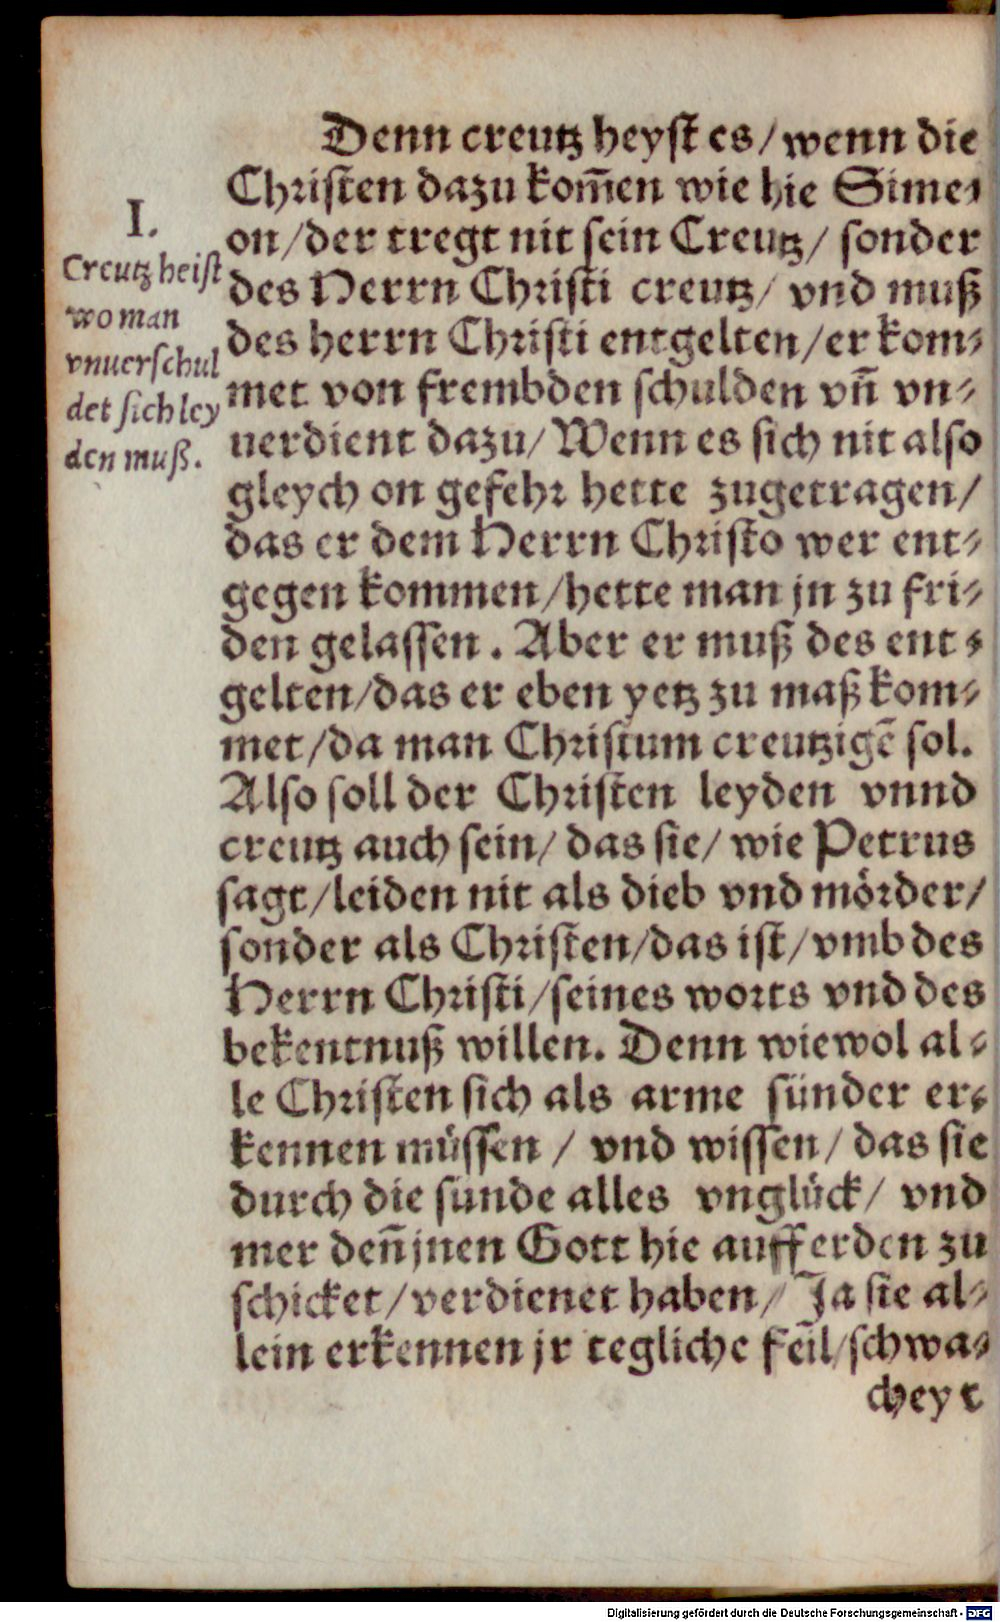 I.
Creutz heist
wo man
vnuerschul
det sich ley
den muß.
Denn creutz heyst es/wenn die
Christen dazu kom̄en wie hie Sime⸗
on/der tregt nit sein Creutz/ sonder
des Herrn Christi creutz/ vnd muß
des herrn Christi entgelten/er kom⸗
met von frembden schulden vn̄ vn⸗
uerdient dazu/ Wenn es sich nit also
gleych on gefehr hette zugetragen/
das er dem Herrn Christo wer ent⸗
gegen kommen/hette man jn zu fri⸗
den gelassen. Aber er muß des ent⸗
gelten/das er eben yetz zu maß kom⸗
met/da man Christum creutzigē sol.
Also soll der Christen leyden vnnd
creutz auch sein/ das sie/ wie Petrus
sagt/leiden nit als dieb vnd mörder/
sonder als Christen/das ist/vmb des
Herrn Christi/seines worts vnd des
bekentnuß willen. Denn wiewol al⸗
le Christen sich als arme sünder er⸗
kennen müssen / vnd wissen/ das sie
durch die sünde alles vnglück/ vnd
mer den̄ jnen Gott hie auff erden zu
schicket/verdienet haben/ Ja sie al⸗
lein erkennen jr tegliche feil/schwa⸗
cheyt
Digitalisierung gefördert durch die Deutsche Forschungsgemeinschaft - DFG